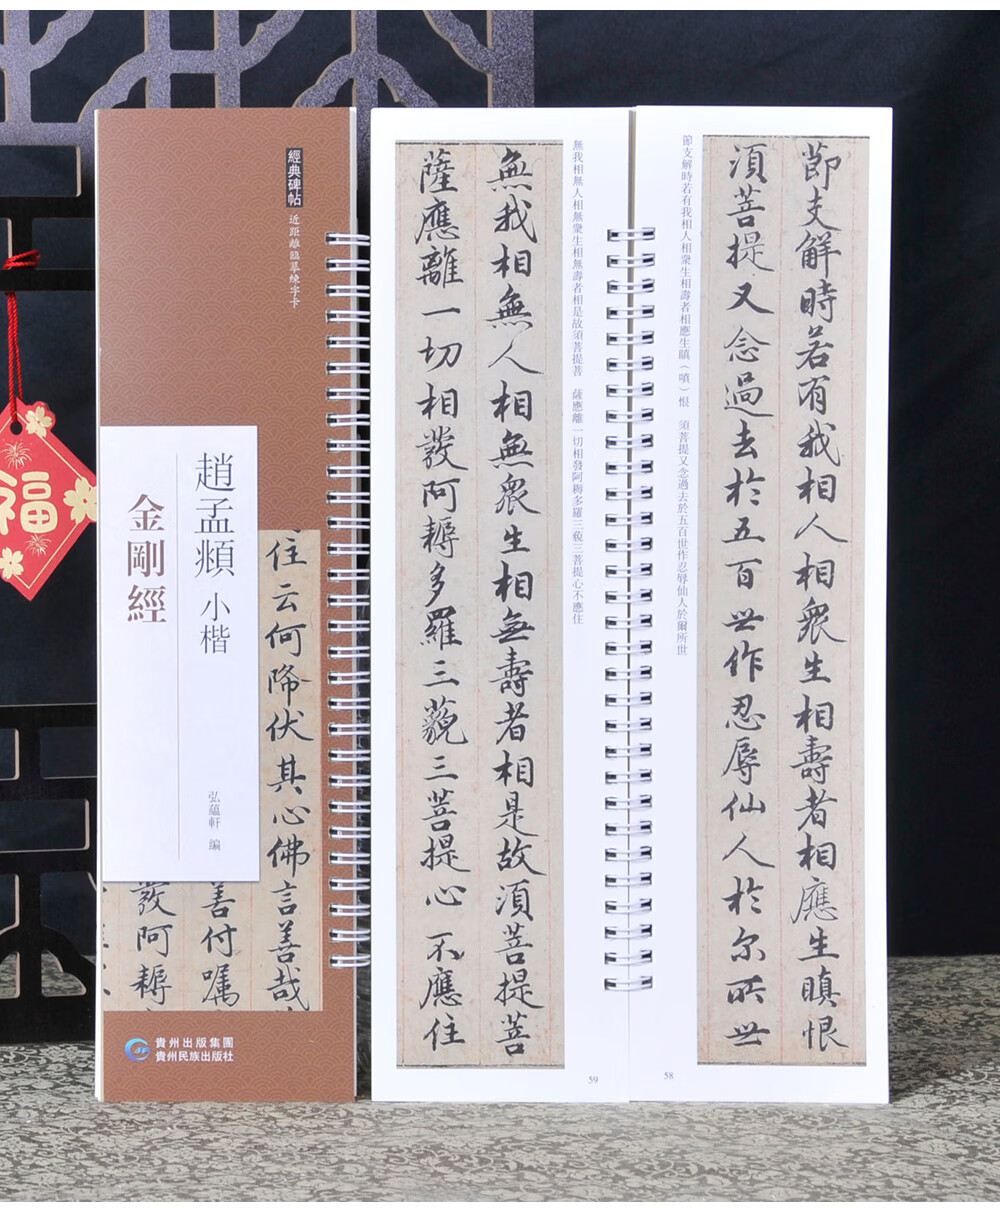 經典碑帖
近距離臨摹練字卡
趙孟頫 小楷
金剛經
弘蘊軒 編
住云何降伏其心佛言善哉
善付囑
發阿耨
貴州出版集團
貴州民族出版社
福
節支解時若有我相人相衆生相壽者相應生瞋恨
須菩提又念過去於五百世作忍辱仙人於尔所世
節支解時若有我相人相衆生相壽者相應生瞋（嗔）恨 須菩提又念過去於五百世作忍辱仙人於爾所世
58
無我相無人相無衆生相無壽者相是故須菩提菩 薩應離一切相發阿耨多羅三藐三菩提心不應住
無我相無人相無衆生相無壽者相是故須菩提菩
薩應離一切相發阿耨多羅三藐三菩提心不應住
59